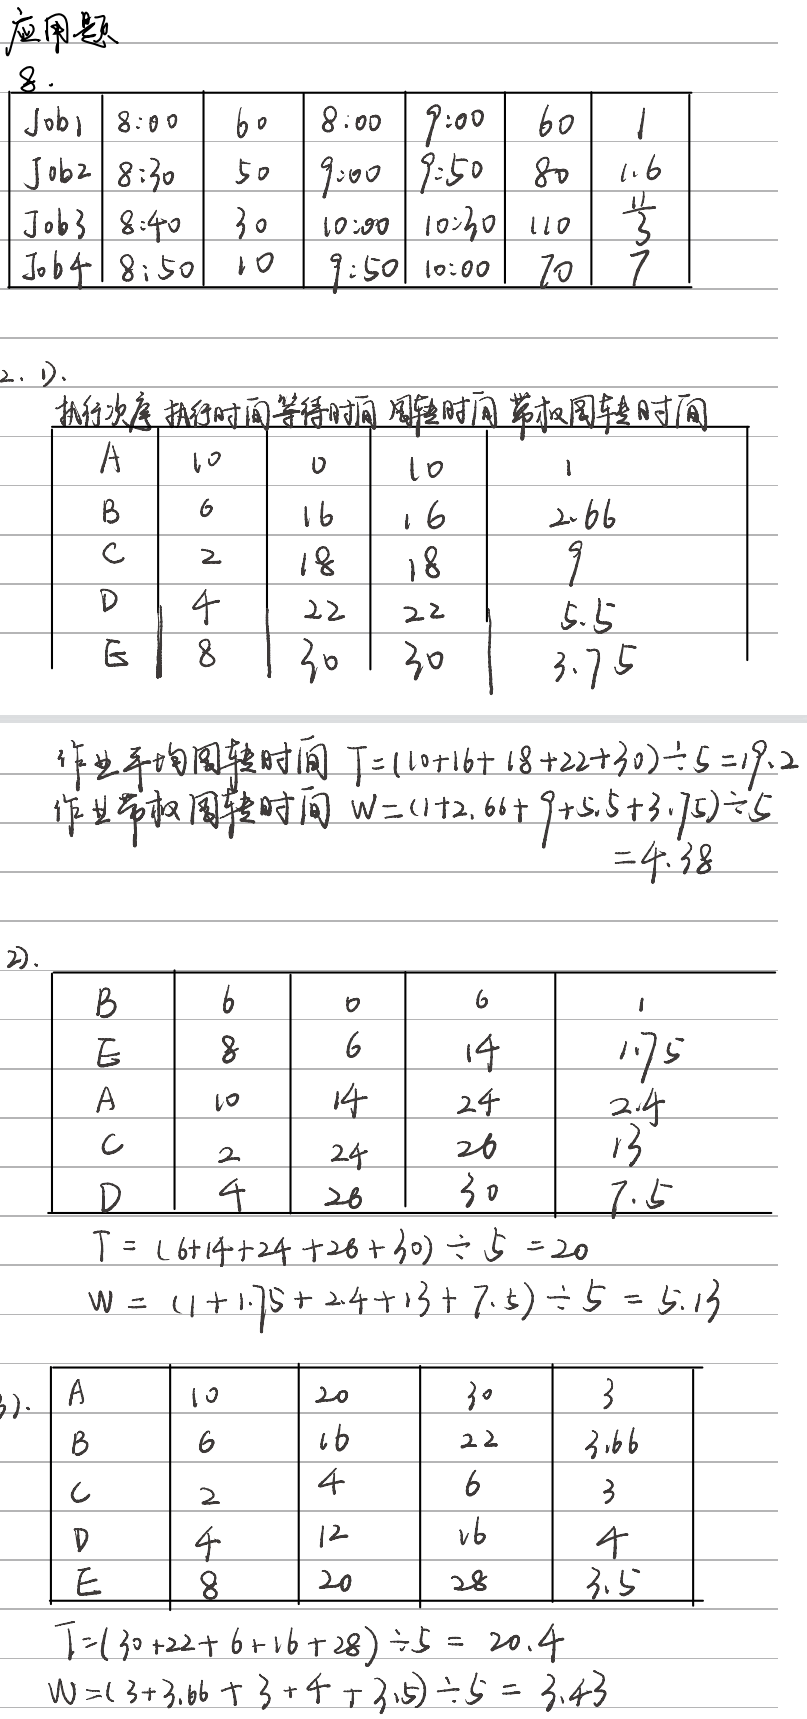 应用题
8.
Job1 8:00 60 8:00 9:00 60 1
Job2 8:30 50 9:00 9:50 80 1.6
Job3 8:40 30 10:00 10:30 110 11/3
Job4 8:50 10 9:50 10:00 70 7
2. 1).
执行次序 执行时间 等待时间 周转时间 带权周转时间
A 10 0 10 1
B 6 16 16 2.66
C 2 18 18 9
D 4 22 22 5.5
E 8 30 30 3.75
作业平均周转时间 T=(10+16+18+22+30)÷5=19.2
作业带权周转时间 W=(1+2.66+9+5.5+3.75)÷5
=4.38
2).
B 6 0 6 1
E 8 6 14 1.75
A 10 14 24 2.4
C 2 24 26 13
D 4 26 30 7.5
T=(6+14+24+26+30)÷5=20
W=(1+1.75+2.4+13+7.5)÷5=5.13
3). A 10 20 30 3
B 6 16 22 3.66
C 2 4 6 3
D 4 12 16 4
E 8 20 28 3.5
T=(30+22+6+16+28)÷5=20.4
W=(3+3.66+3+4+3.5)÷5=3.43